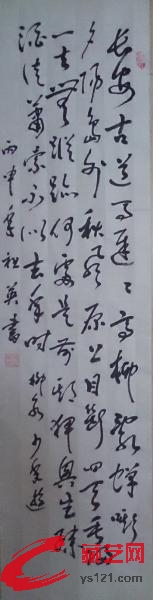 长安古道马迟迟高柳乱蝉嘶
夕阳岛外秋风原上目断四天垂归云
一去无踪迹何处是前期狎兴生疏
酒徒萧索不似去年时 柳永少年游
丙申年 祖英书
易艺网
ys121.com